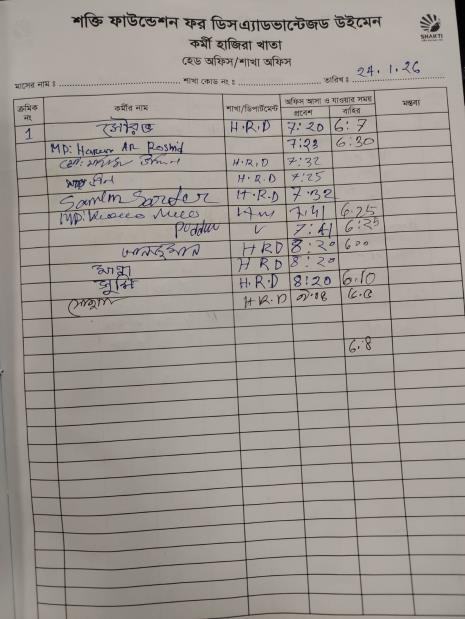 শক্তি ফাউন্ডেশন ফর ডিসএ্যাডভান্টেজড উইমেন
কর্মী হাজিরা খাতা
হেড অফিস/শাখা অফিস
SHAKTI
মাসের নাম : শাখা কোড নং : তারিখ : 24.1.26
ক্রমিক নং কর্মীর নাম শাখা/ডিপার্টমেন্ট অফিস আসা ও যাওয়ার সময় মন্তব্য
প্রবেশ বাহির
1 সৌরভ H.R.D 7:20 6:7
MD: Harun AR Roshid 7:23 6:30
H.R.D 7:32
H.R.D 7:25
Samim Sarder H.R.D 7:32
7:41 6.25
Poddar 7:41 6:25
HRD 8:20 6:00
মান্না H R D 8:20
সুমি H.R.D 8:20 6.10
সোহাগ H R.D
6:8